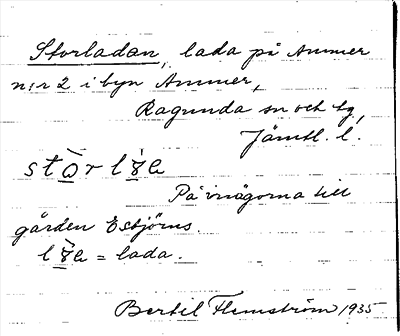 Storladan, lada på Ammer
n:r 2 i byn Ammer,
Ragunda sn och tg,
Jämtl. l.
På inägorna till
gården Estjörns.
= lada.
Bertil Flemström 1935